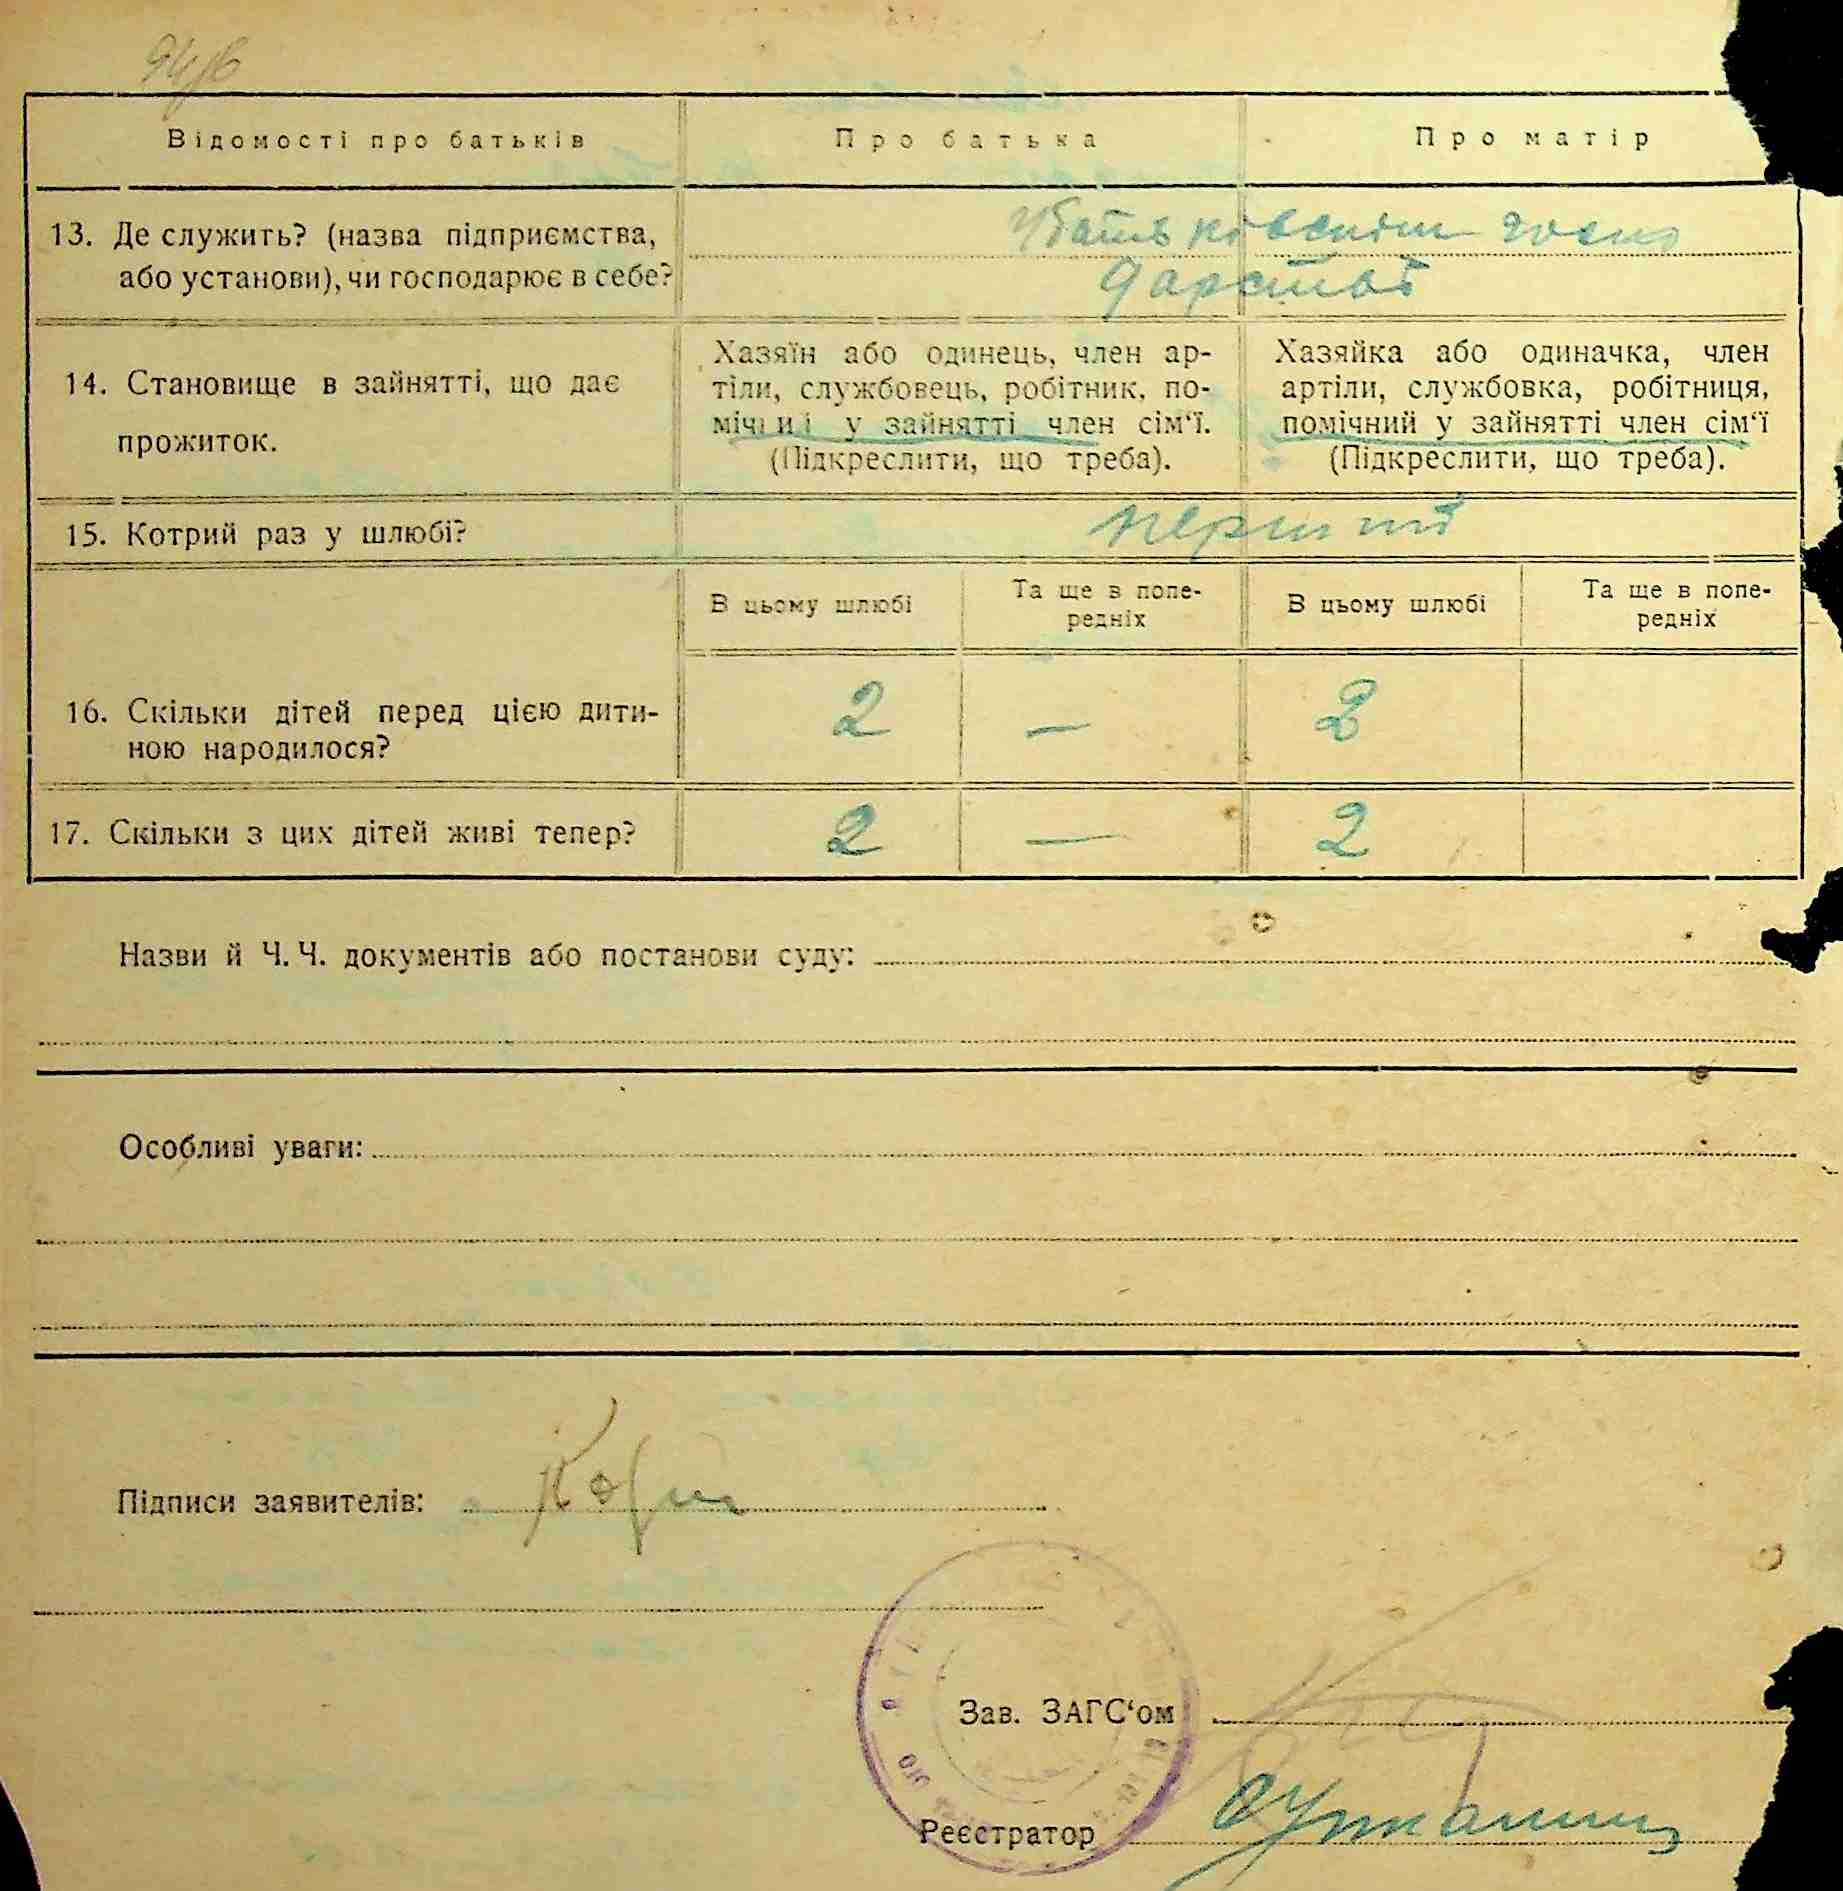 Відомості про батьків
Про батька
Про матір
13. Де служить? (назва підприємства,
або установи), чи господарює в себе?
У батьківскім госпо
дарстві
14. Становище в зайнятті, що дає
прожиток.
Хазяїн або одинець, член ар-
тіли, службовець, робітник, по-
мічний у зайнятті член сім‘ї.
(Підкреслити, що треба).
Хазяйка або одиначка, член
артіли, службовка, робітниця,
помічний у зайнятті член сім‘ї
(Підкреслити, що треба).
15. Котрий раз у шлюбі?
перший
В цьому шлюбі
Та ще в попе-
редніх
В цьому шлюбі
Та ще в попе-
редніх
16. Скільки дітей перед цією дити-
ною народилося?
2 — 2
17. Скільки з цих дітей живі тепер?
2 — 2
Назви й Ч. Ч. документів або постанови суду:
Особливі уваги:
Підписи заявителів:
Зав. ЗАГС‘ом
Реєстратор